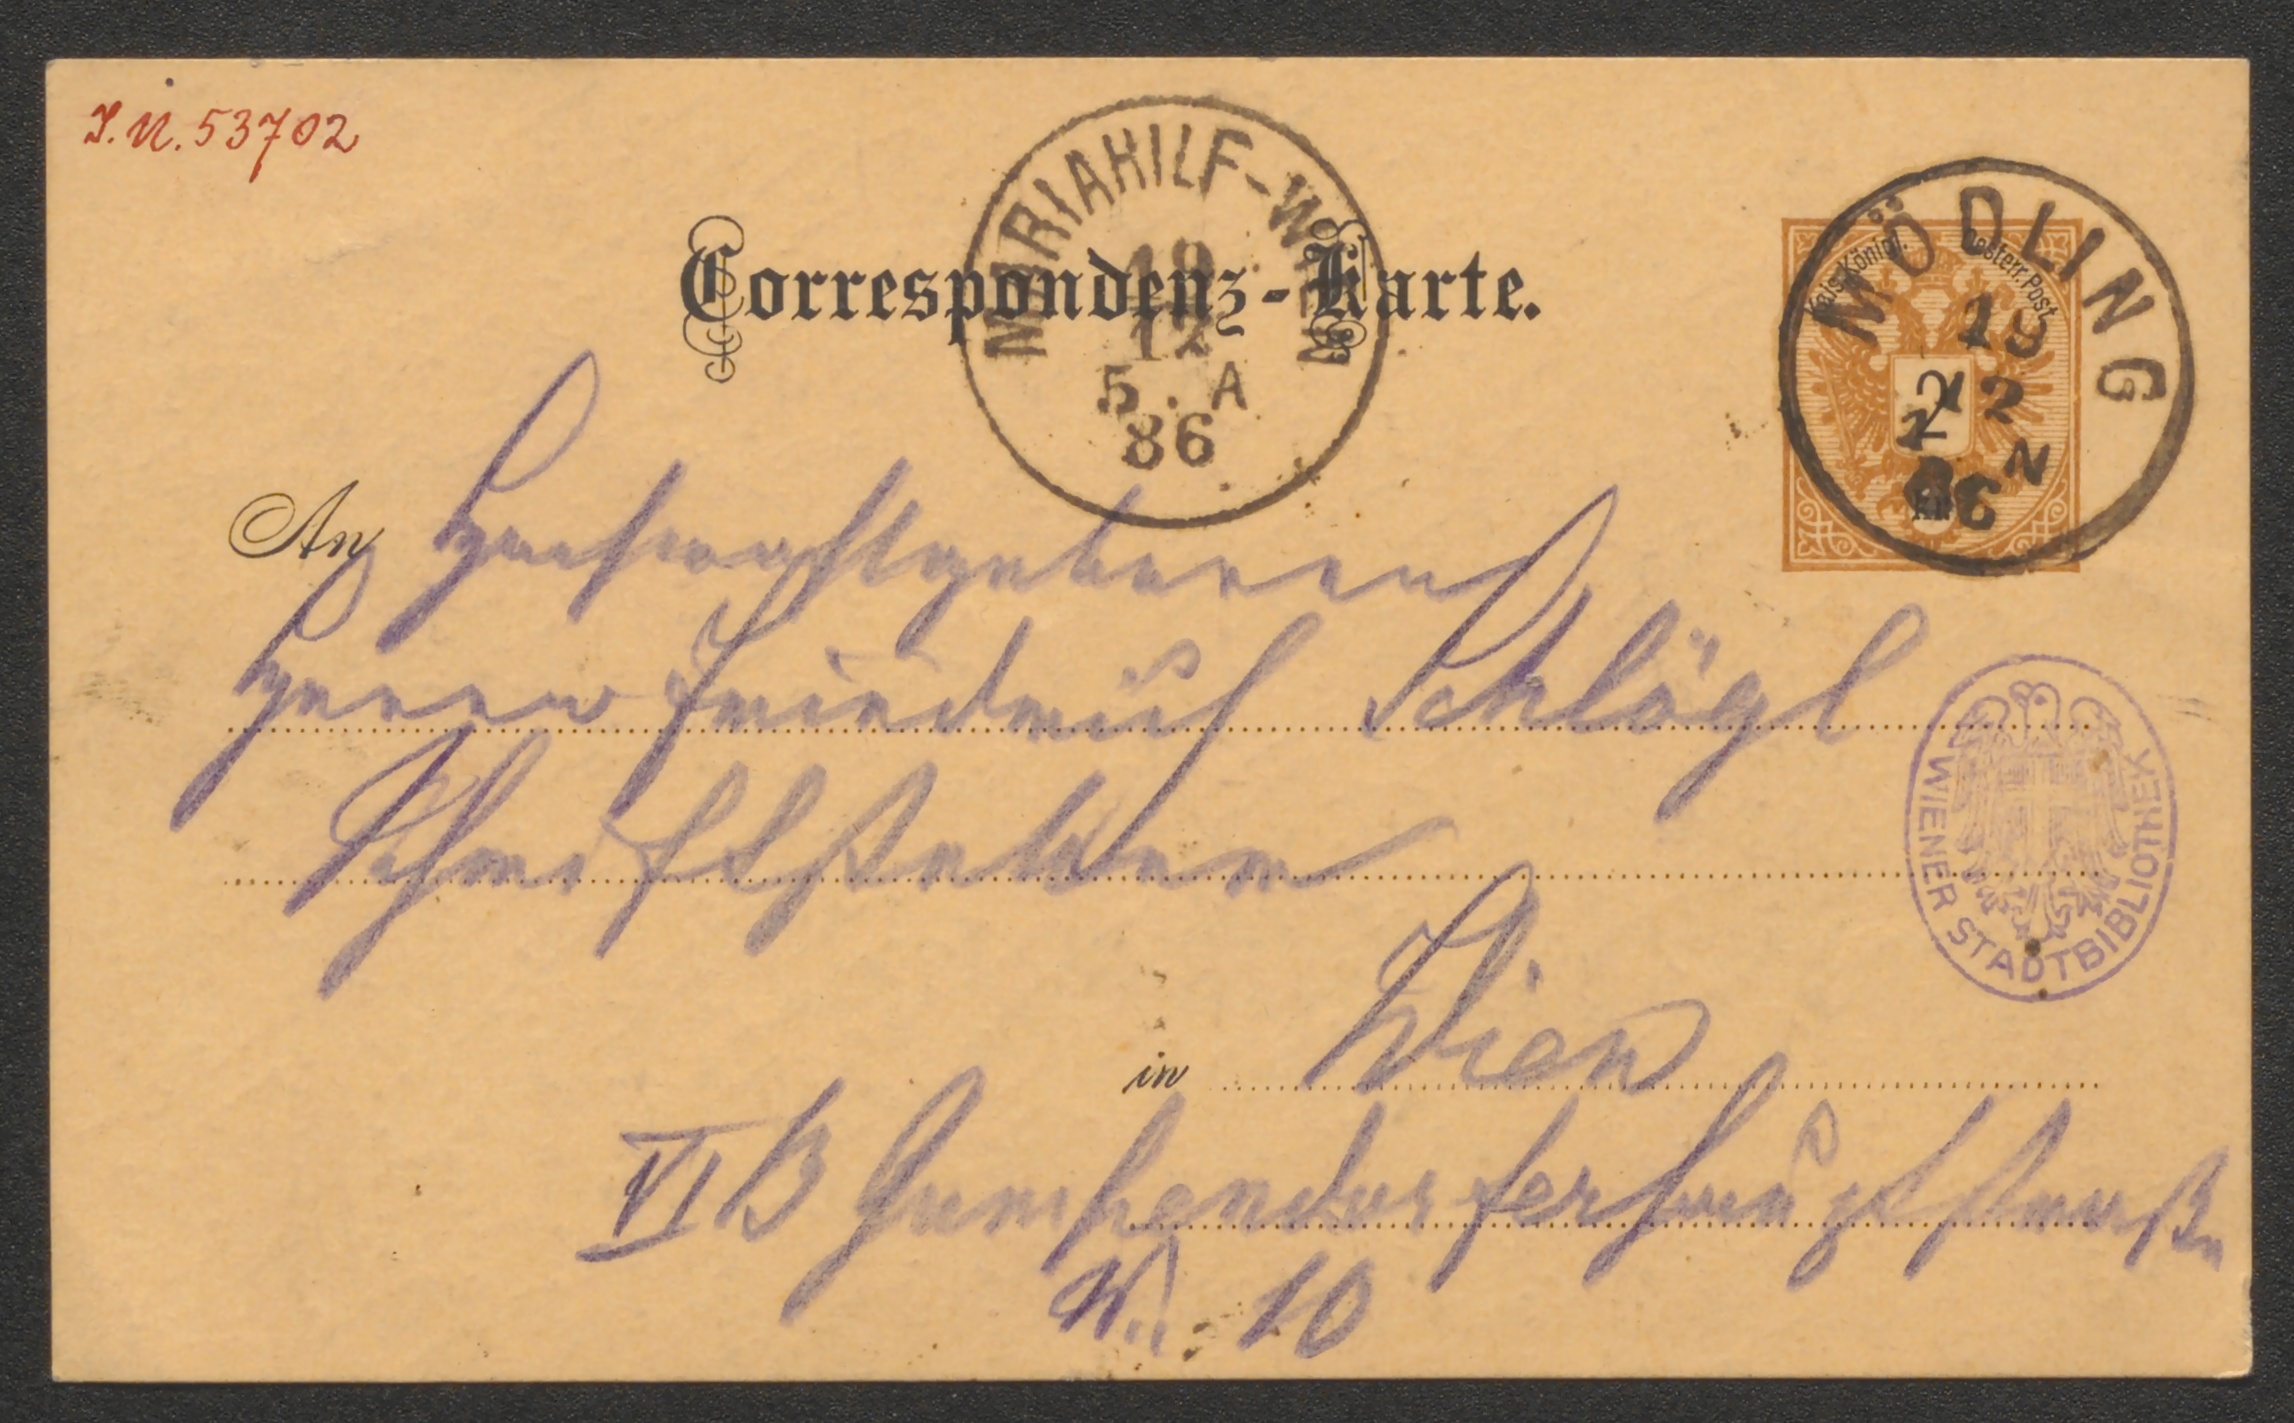 I.N. 53702
MARIAHILF-WIEN
19
12
5. A
86
Correspondenz-Karte.
Kais. Königl. oesterr. Post
2
Kr.
MÖDLING
19
12
N
86
An Hochwohlgeboren
Herrn Friedrich Schlögl
Schriftsteller
WIENER STADTBIBLIOTHEK
in Wien
VI B Gumpendorferhauptstraße
N. 10